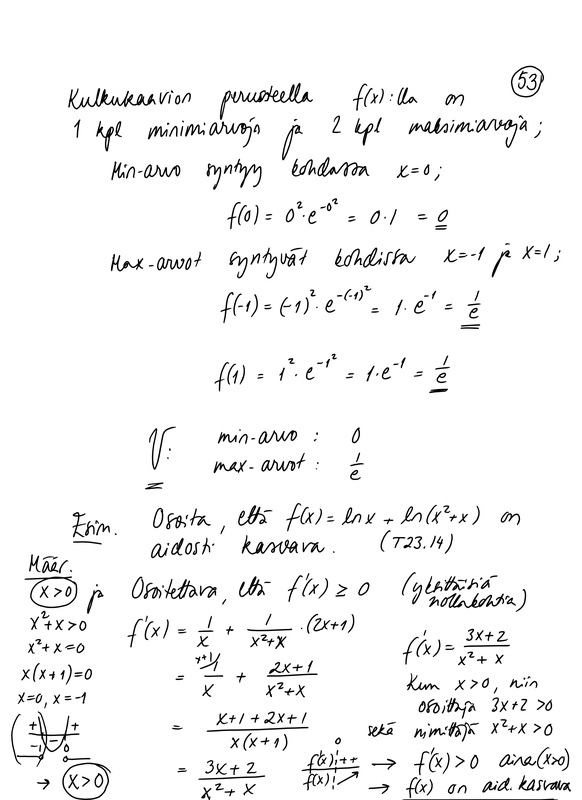 53
Kulkukaavion perusteella f(x):lla on
1 kpl minimiarvoja ja 2 kpl maksimiarvoja;
Min-arvo syntyy kohdassa x=0;
f(0) = 0²·e^(-0²) = 0·1 = 0
Max-arvot syntyvät kohdissa x=-1 ja x=1;
f(-1) = (-1)²·e^(-(-1)²) = 1·e^(-1) = 1/e
f(1) = 1²·e^(-1²) = 1·e^(-1) = 1/e
V: min-arvo : 0
max-arvot : 1/e
Esim. Osoita, että f(x) = ln x + ln(x²+x) on
aidosti kasvava. (T23.14)
Määr.
x>0 ja
x²+x>0
x²+x=0
x(x+1)=0
x=0, x=-1
+ - +
-1 0
→ x>0
Osoitettava, että f'(x) ≥ 0 (yksittäisiä
nollakohtia)
f'(x) = 1/x + 1/(x²+x) ·(2x+1)
= x+1) 1/x + (2x+1)/(x²+x)
= (x+1+2x+1)/(x(x+1))
= (3x+2)/(x²+x)
f'(x) = (3x+2)/(x²+x)
Kun x>0, niin
osoittaja 3x+2 >0
sekä nimittäjä x²+x >0
0
f'(x) ++
f(x)
→ f'(x)>0 aina (x>0)
→ f(x) on aid. kasvava